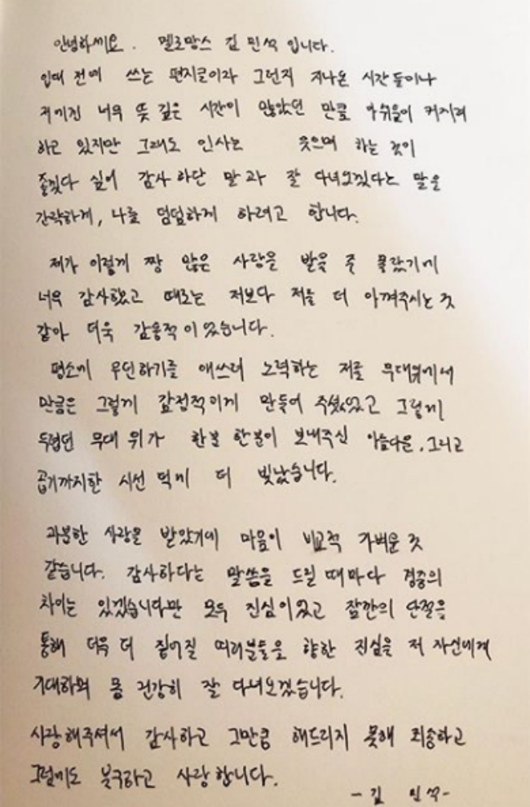 안녕하세요. 멜로망스 김민석 입니다.
입대 전에 쓰는 편지글이라 그런지 지나온 시간들이나
저에겐 너무 뜻 깊은 시간이 많았던 만큼 아쉬움이 커지려
하고 있지만 그래도 인사는 웃으며 하는 것이
좋겠다 싶어 감사하단 말과 잘 다녀오겠다는 말을
간략하게, 나름 덤덤하게 하려고 합니다.
제가 이렇게 짱 많은 사랑을 받을 줄 몰랐기에
너무 감사했고 때로는 저보다 저를 더 아껴주시는 것
같아 더욱 감동적이었습니다.
평소에 무던하기를 애쓰려 노력하는 저를 무대위에서
만큼은 그렇게 감정적이게 만들어 주셨었고 그렇게
두렵던 무대 위가 한분 한분이 보내주신 아름다운, 그리고
곱기까지한 시선 덕에 더 빛났습니다.
과분한 사랑을 받았기에 마음이 비교적 가벼운 것
같습니다. 감사하다는 말씀을 드릴 때마다 경중의
차이는 있겠습니다만 모두 진심이었고 잠깐의 단절을
통해 더욱 더 짙어질 여러분들을 향한 진심을 저 자신에게
기대하며 몸 건강히 잘 다녀오겠습니다.
사랑해주셔서 감사하고 그만큼 해드리지 못해 죄송하고
그럼에도 불구하고 사랑합니다.
- 김민석 -